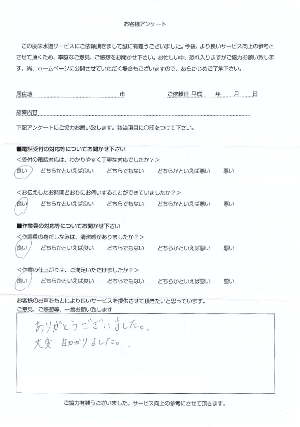 お客様アンケート
この度は水道サービスにご依頼頂きまして誠に有難うございました。今後、より良いサービス向上の参考と
させて頂くため、率直なご意見、ご感想をお聞かせ下さい。お忙しい中、恐れ入りますがご協力お願い致しま
す。尚、ホームページに公開させていただく場合もございますので、あらかじめご了承下さい。
居住地 市 ご依頼日 平成 年 月 日
故障内容
下記アンケートにご協力お願い致します。該当項目に〇印をつけて下さい。
■電話受付の対応等についてお聞かせ下さい
<受付の電話対応は、わかりやすく丁寧な対応でしたか?>
良い どちらかといえば良い どちらでもない どちらかといえば悪い 悪い
<お伝えしたお時間どおりにお伺いすることができていましたか?>
良い どちらかといえば良い どちらでもない どちらかといえば悪い 悪い
■作業員の対応等についてお聞かせ下さい
<作業員の身だしなみは、清潔感がありましたか?>
良い どちらかといえば良い どちらでもない どちらかといえば悪い 悪い
<作業の仕上がりは、ご満足いただけましたか?>
良い どちらかといえば良い どちらでもない どちらかといえば悪い 悪い
お客様のお声をもとにより良いサービスを提供させて頂きたいと思っています。
ご意見、ご感想等、一言お願い致します
ありがとうございました。
大変 助かりました。
ご協力有難うございました。サービス向上の参考にさせて頂きます。